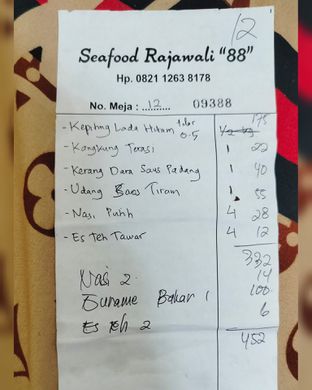 12
Seafood Rajawali "88"
Hp. 0821 1263 8178
No. Meja : 12 09388
- Kepiting Lada Hitam telor 0.5 175
- Kangkung Terasi 1 22
- Kerang Dara Saus Padang 1 40
- Udang Saos Tiram 1 55
- Nasi Putih 4 28
- Es Teh Tawar 4 12
332
Nasi 2 14
Gurame Bakar 1 100
Es teh 2 6
452